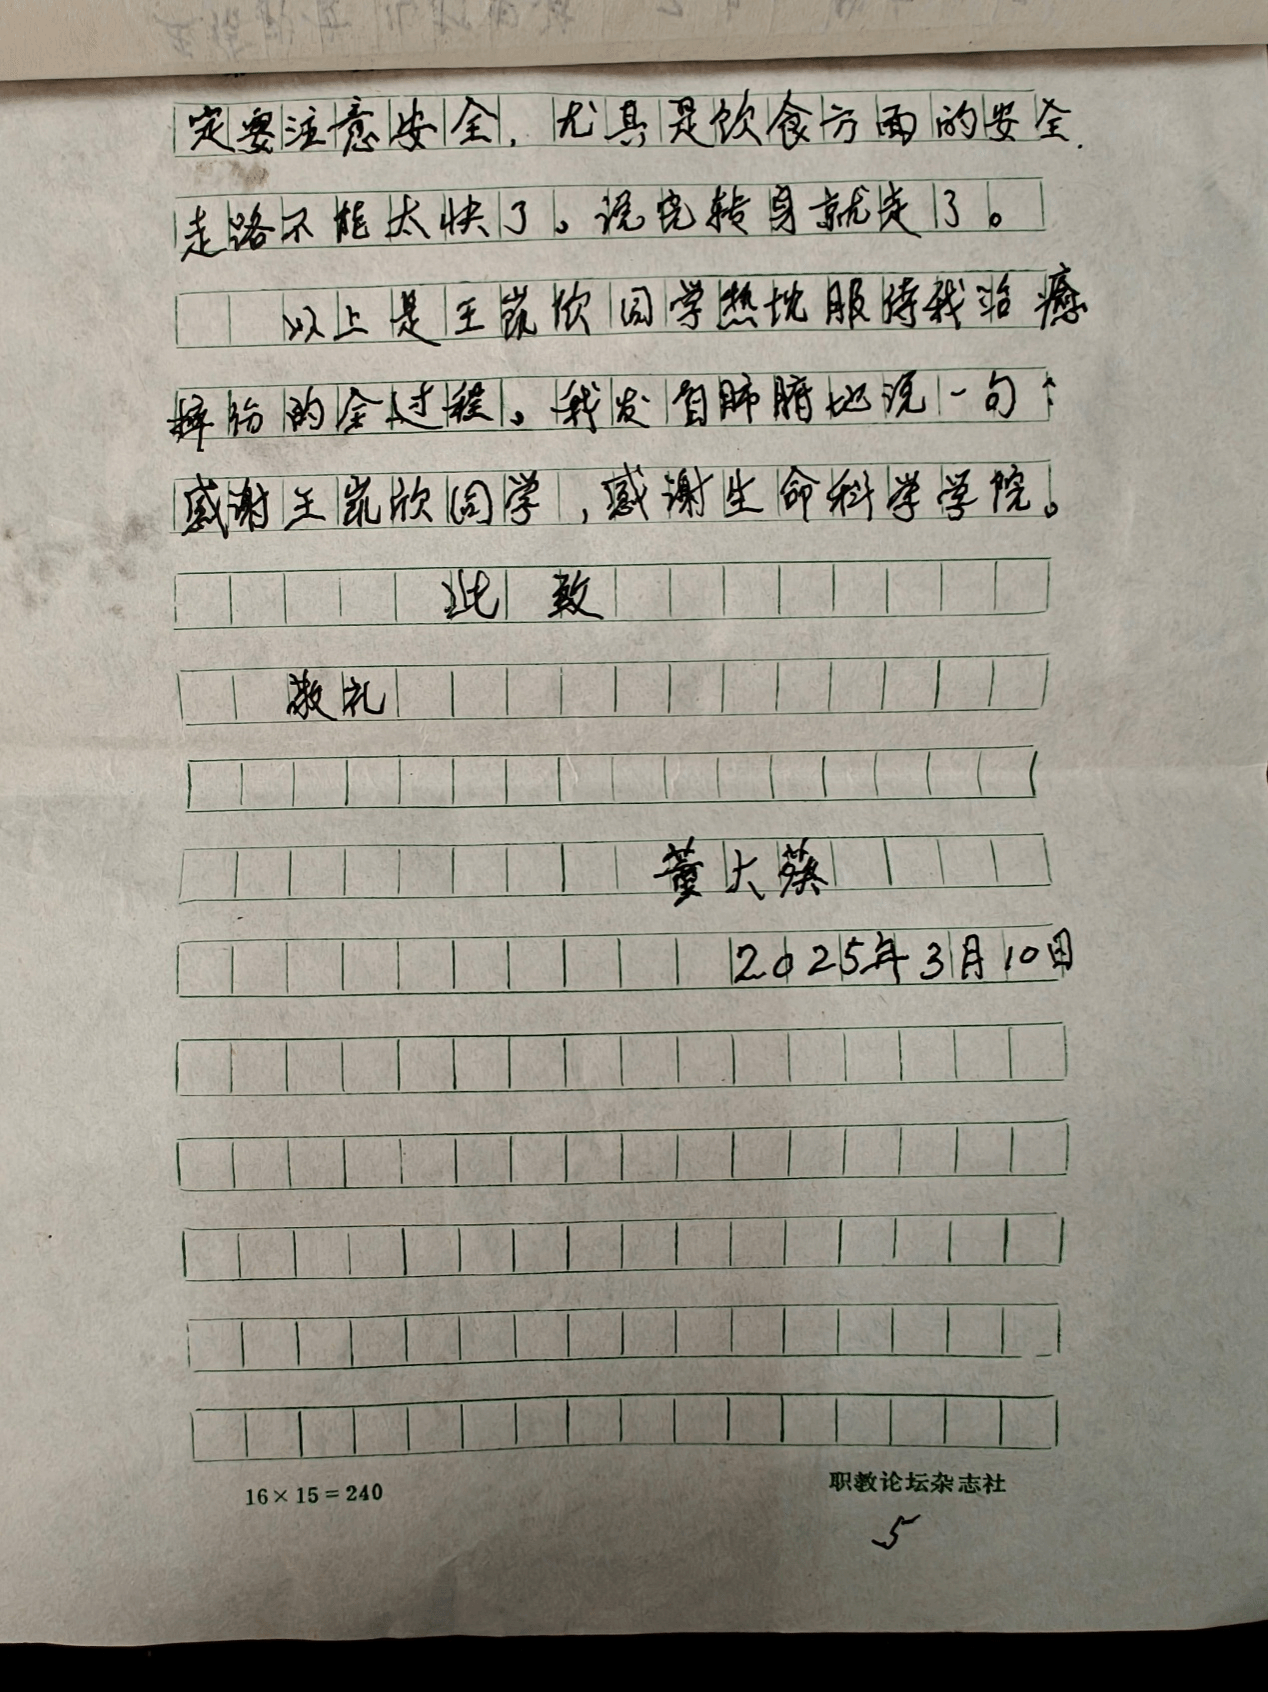 定要注意安全，尤其是饮食方面的安全.
走路不能太快了。说完转身就走了。
以上是王崑欣同学热忱服侍我治愈
摔伤的全过程。我发自肺腑地说一句：
感谢王崑欣同学，感谢生命科学学院。
此致
敬礼
董大
2025年3月10日
16×15=240
职教论坛杂志社
5